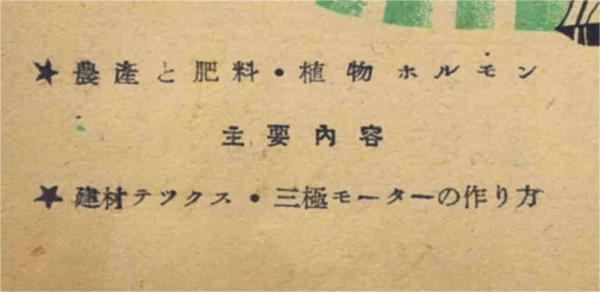 ★農産と肥料・植物ホルモン
主要内容
★建材テックス・三極モーターの作り方